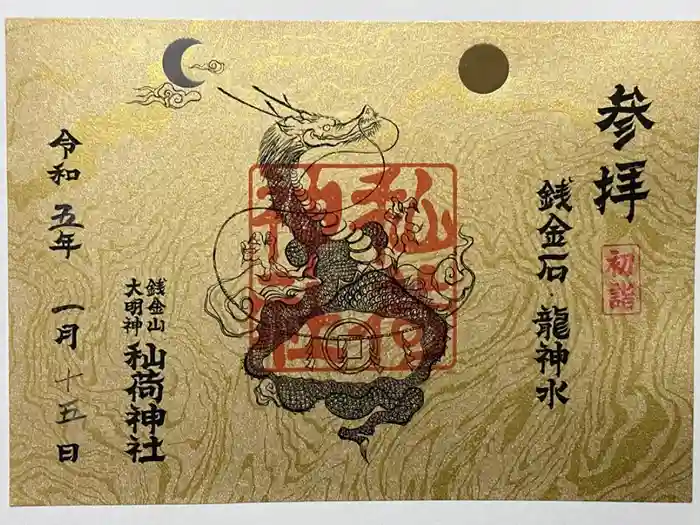 参拝
初詣
銭金石・龍神水
秈荷神社
銭金山
大明神
秈荷神社
令和五年一月十五日